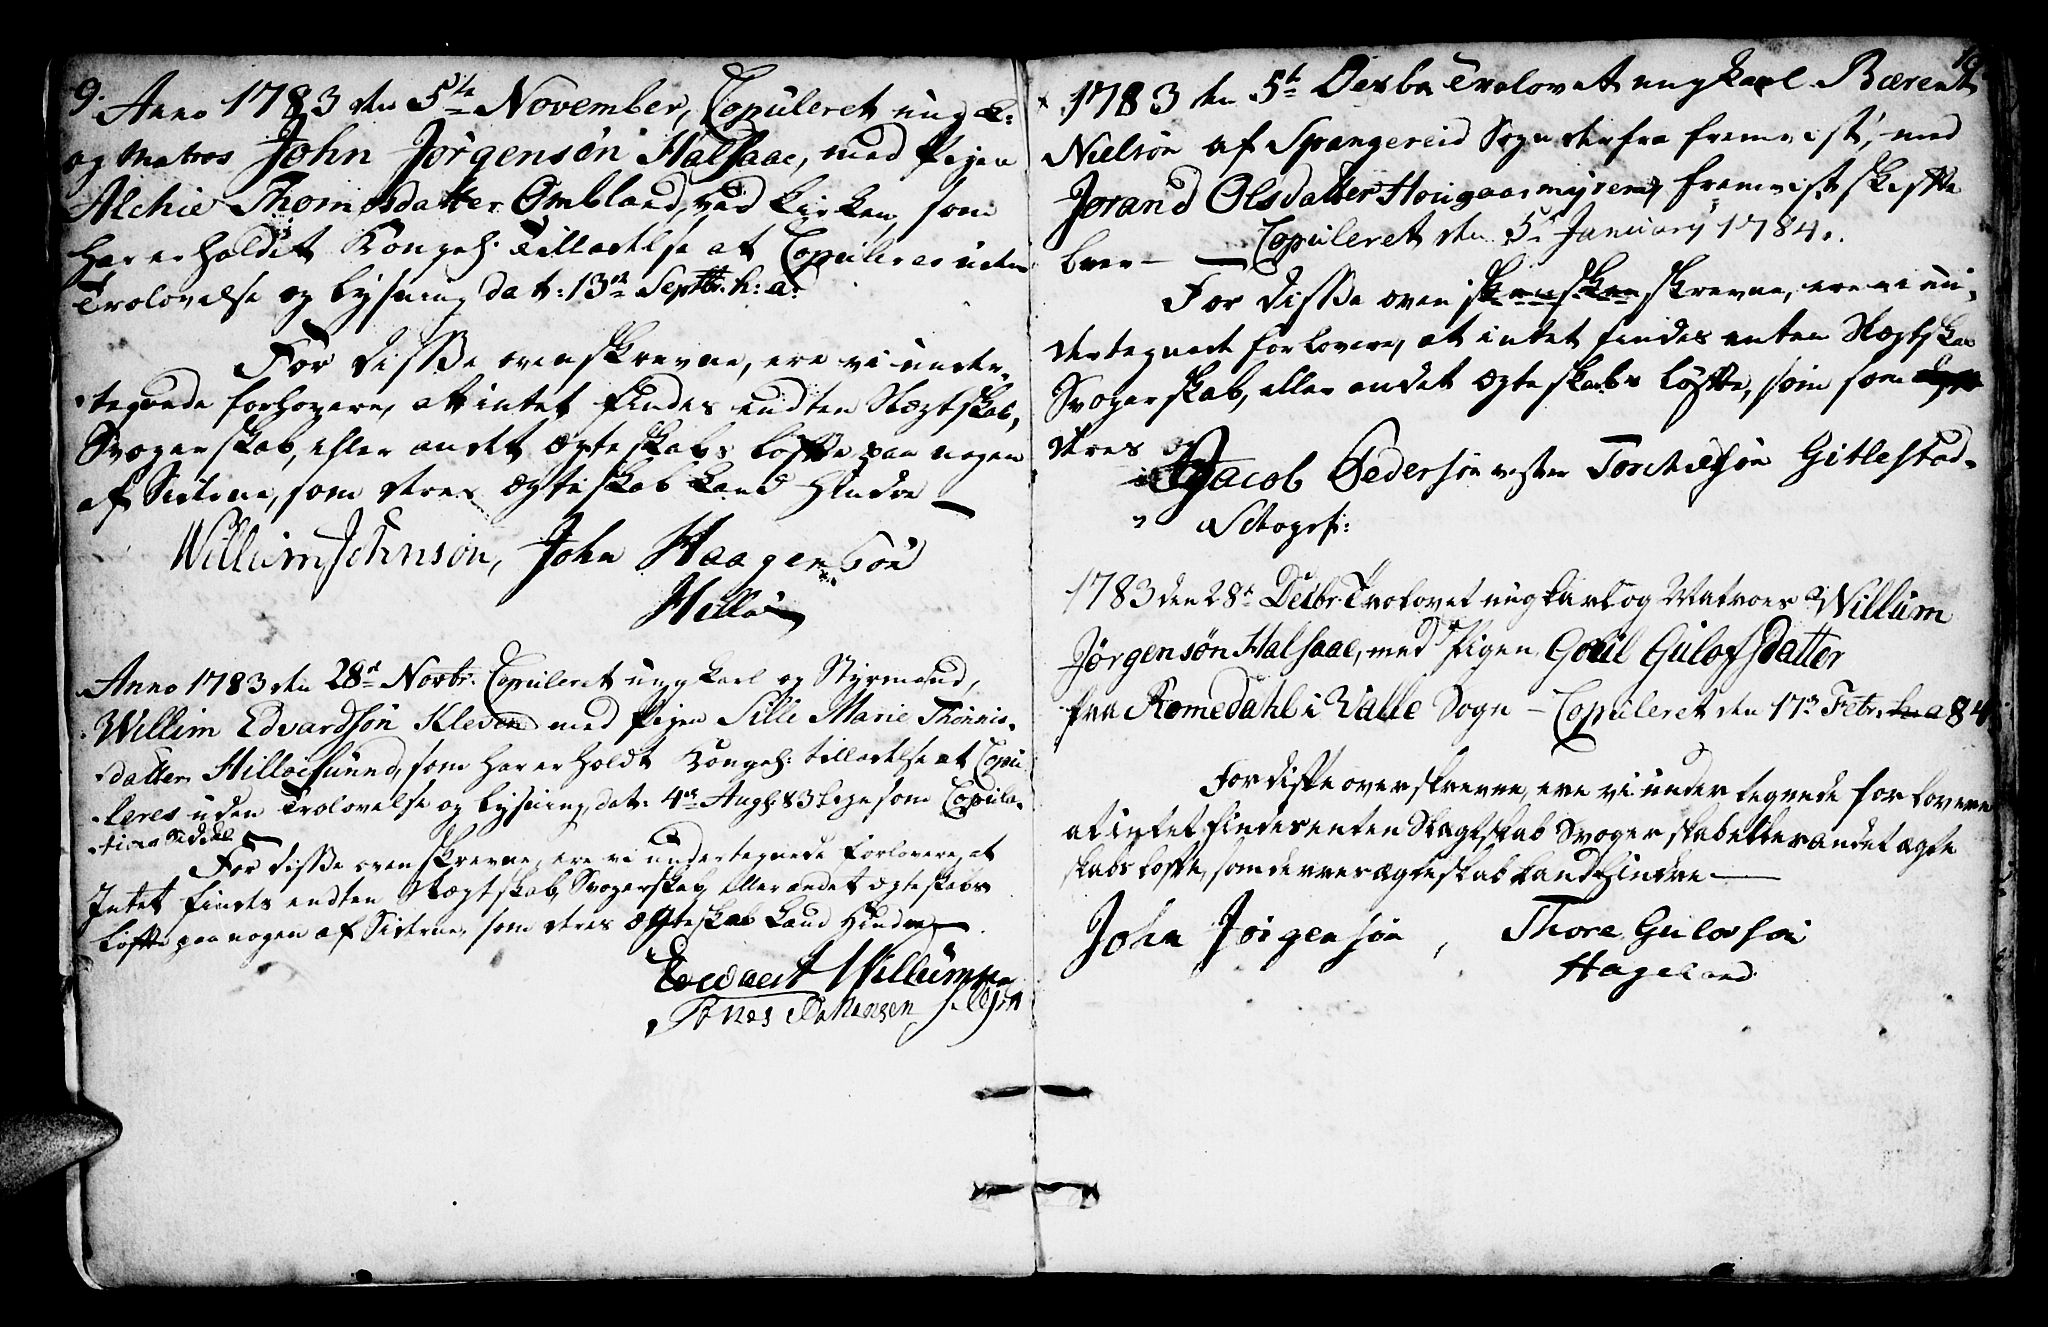 9. Anno 1783 den 5te November, Copuleret ung K:
og Matros John Jörgensön Halsaae, med Pigen
Alchie Thomesdatter Ombland, ved Kirken, som
har erholdet Kongel: Tilladelse at Copuleres uden
Trolovelse og lysning dat: 13de Septbr. h: a:
For disse ovenskrevne, ere vi under-
tegnede forlovere, at intet findes endten Slægtskab,
Svogerskab, eller andet Ægteskabs løfte paa nogen
af Siderne, som deres Ægteskab kand hindre —
Willum Johnsön, John Haagensön
Hillöe
Anno 1783 den 28de Novbr. Copuleret ungkarl og Styrmand,
Willim Edvardsön Kleven med Pigen Silli Marie Thönnis-
datter Hilloesund, som har erholdt Kongel: tilladelse at Copu-
leres uden Trolovelse og lysning, dat: 4de Aug: 83 ligesom Copula-
tions Seddel —
For disse ovenskrevne, ere vi undertegnede forlovere, at
Intet findes endten Slægtskab, Svogerskab, eller andet Ægteskabs
løfte paa nogen af Siderne, som deres Ægteskab kand hindre —
Edvaert Willumsen
Tönes Johansen
10
1783 den 5te Decbr Trolovet ungkarl Bærent
Nielsön af Spangereid Sogn derfra fremvist, med
Jorand Olsdatter Hougaasmyren, fremvist skifte
brev — Copuleret den 5te January 1784.
For disse oven skrevne, ere vi un-
dertegnede forlovere, at intet findes enten Slægtskab
Svogerskab, eller andet Ægteskabs løfte, som
deres
Jacob Pedersön Torchelsön Gitlestad
1783 den 28de Decbr. Trolovet ungkarl og Matroes Willum
Jörgensön Halsaae, med Pigen Goëil Gulofsdatter
fra Romedahl i Valle Sogn — Copuleret den 17de Febr. 84
For disse overskrevne, ere vi undertegnede forlovere
at intet findes enten Slagtskab Svogerskab eller andet ægte
skabs løfte, som derres ægteskab kand hindre —
John Jörgensön, Thore Gulovsön
Hageland